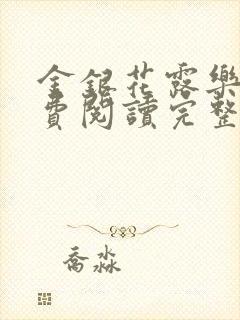 金銀花露樂
費閱讀完整
喬淼